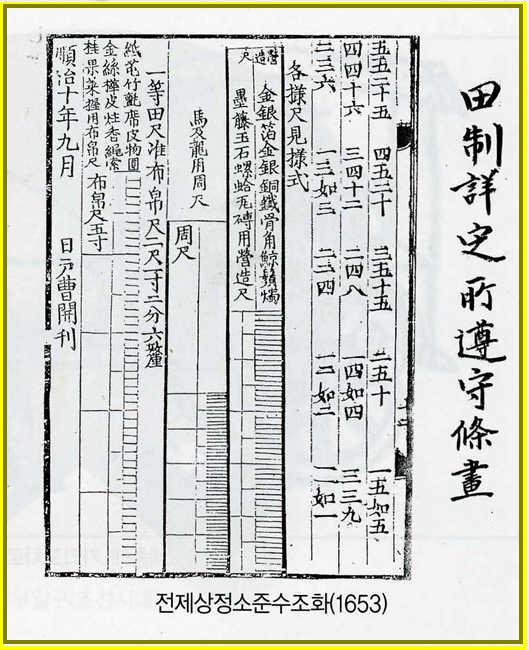 田制詳定所遵守條畫
五五二十五 四五二十 三五十五 二五十 一五如五
四四十六 三四十二 二四八 一四如四 三三九
二三六 一三如三 二二四 一二如二 一一如一
各樣尺見樣式
金銀箔金銀銅鐵骨角鯨鬚燭
營造尺
墨藤玉石螺蛤瓦磚用營造尺
馬及龍用周尺
周尺
一等田尺准布帛尺二尺一寸二分六釐
紙芚竹氈席皮物圓
金絲樺皮炷香繩索
桂果菜握用布帛尺
布帛尺五寸
順治十年九月 日戶曹開刊
전제상정소준수조화(1653)